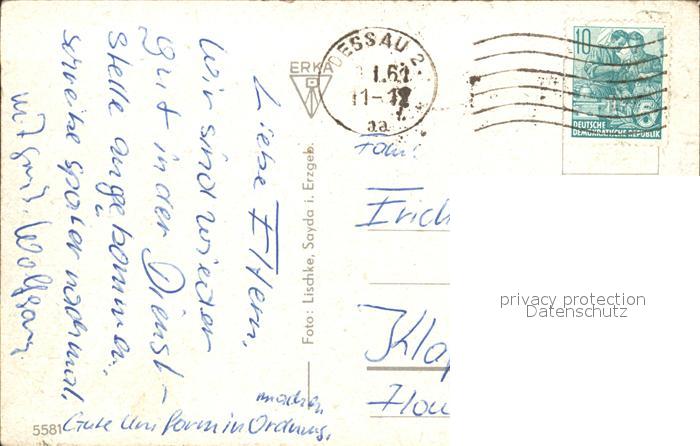 Liebe Eltern,
Wir sind wieder
Gut in der Dienst-
stelle angekommen,
schreibe später nochmal.
mit Gruß. Wolfgang
machen
Gute Uniform in Ordnung,
5581
ERKA
Foto: Lischke, Sayda i. Erzgeb.
DESSAU 2
11-12
aa
10
DEUTSCHE
DEMOKRATISCHE REPUBLIK
Fam.
Erich
Kla
privacy protection
Datenschutz